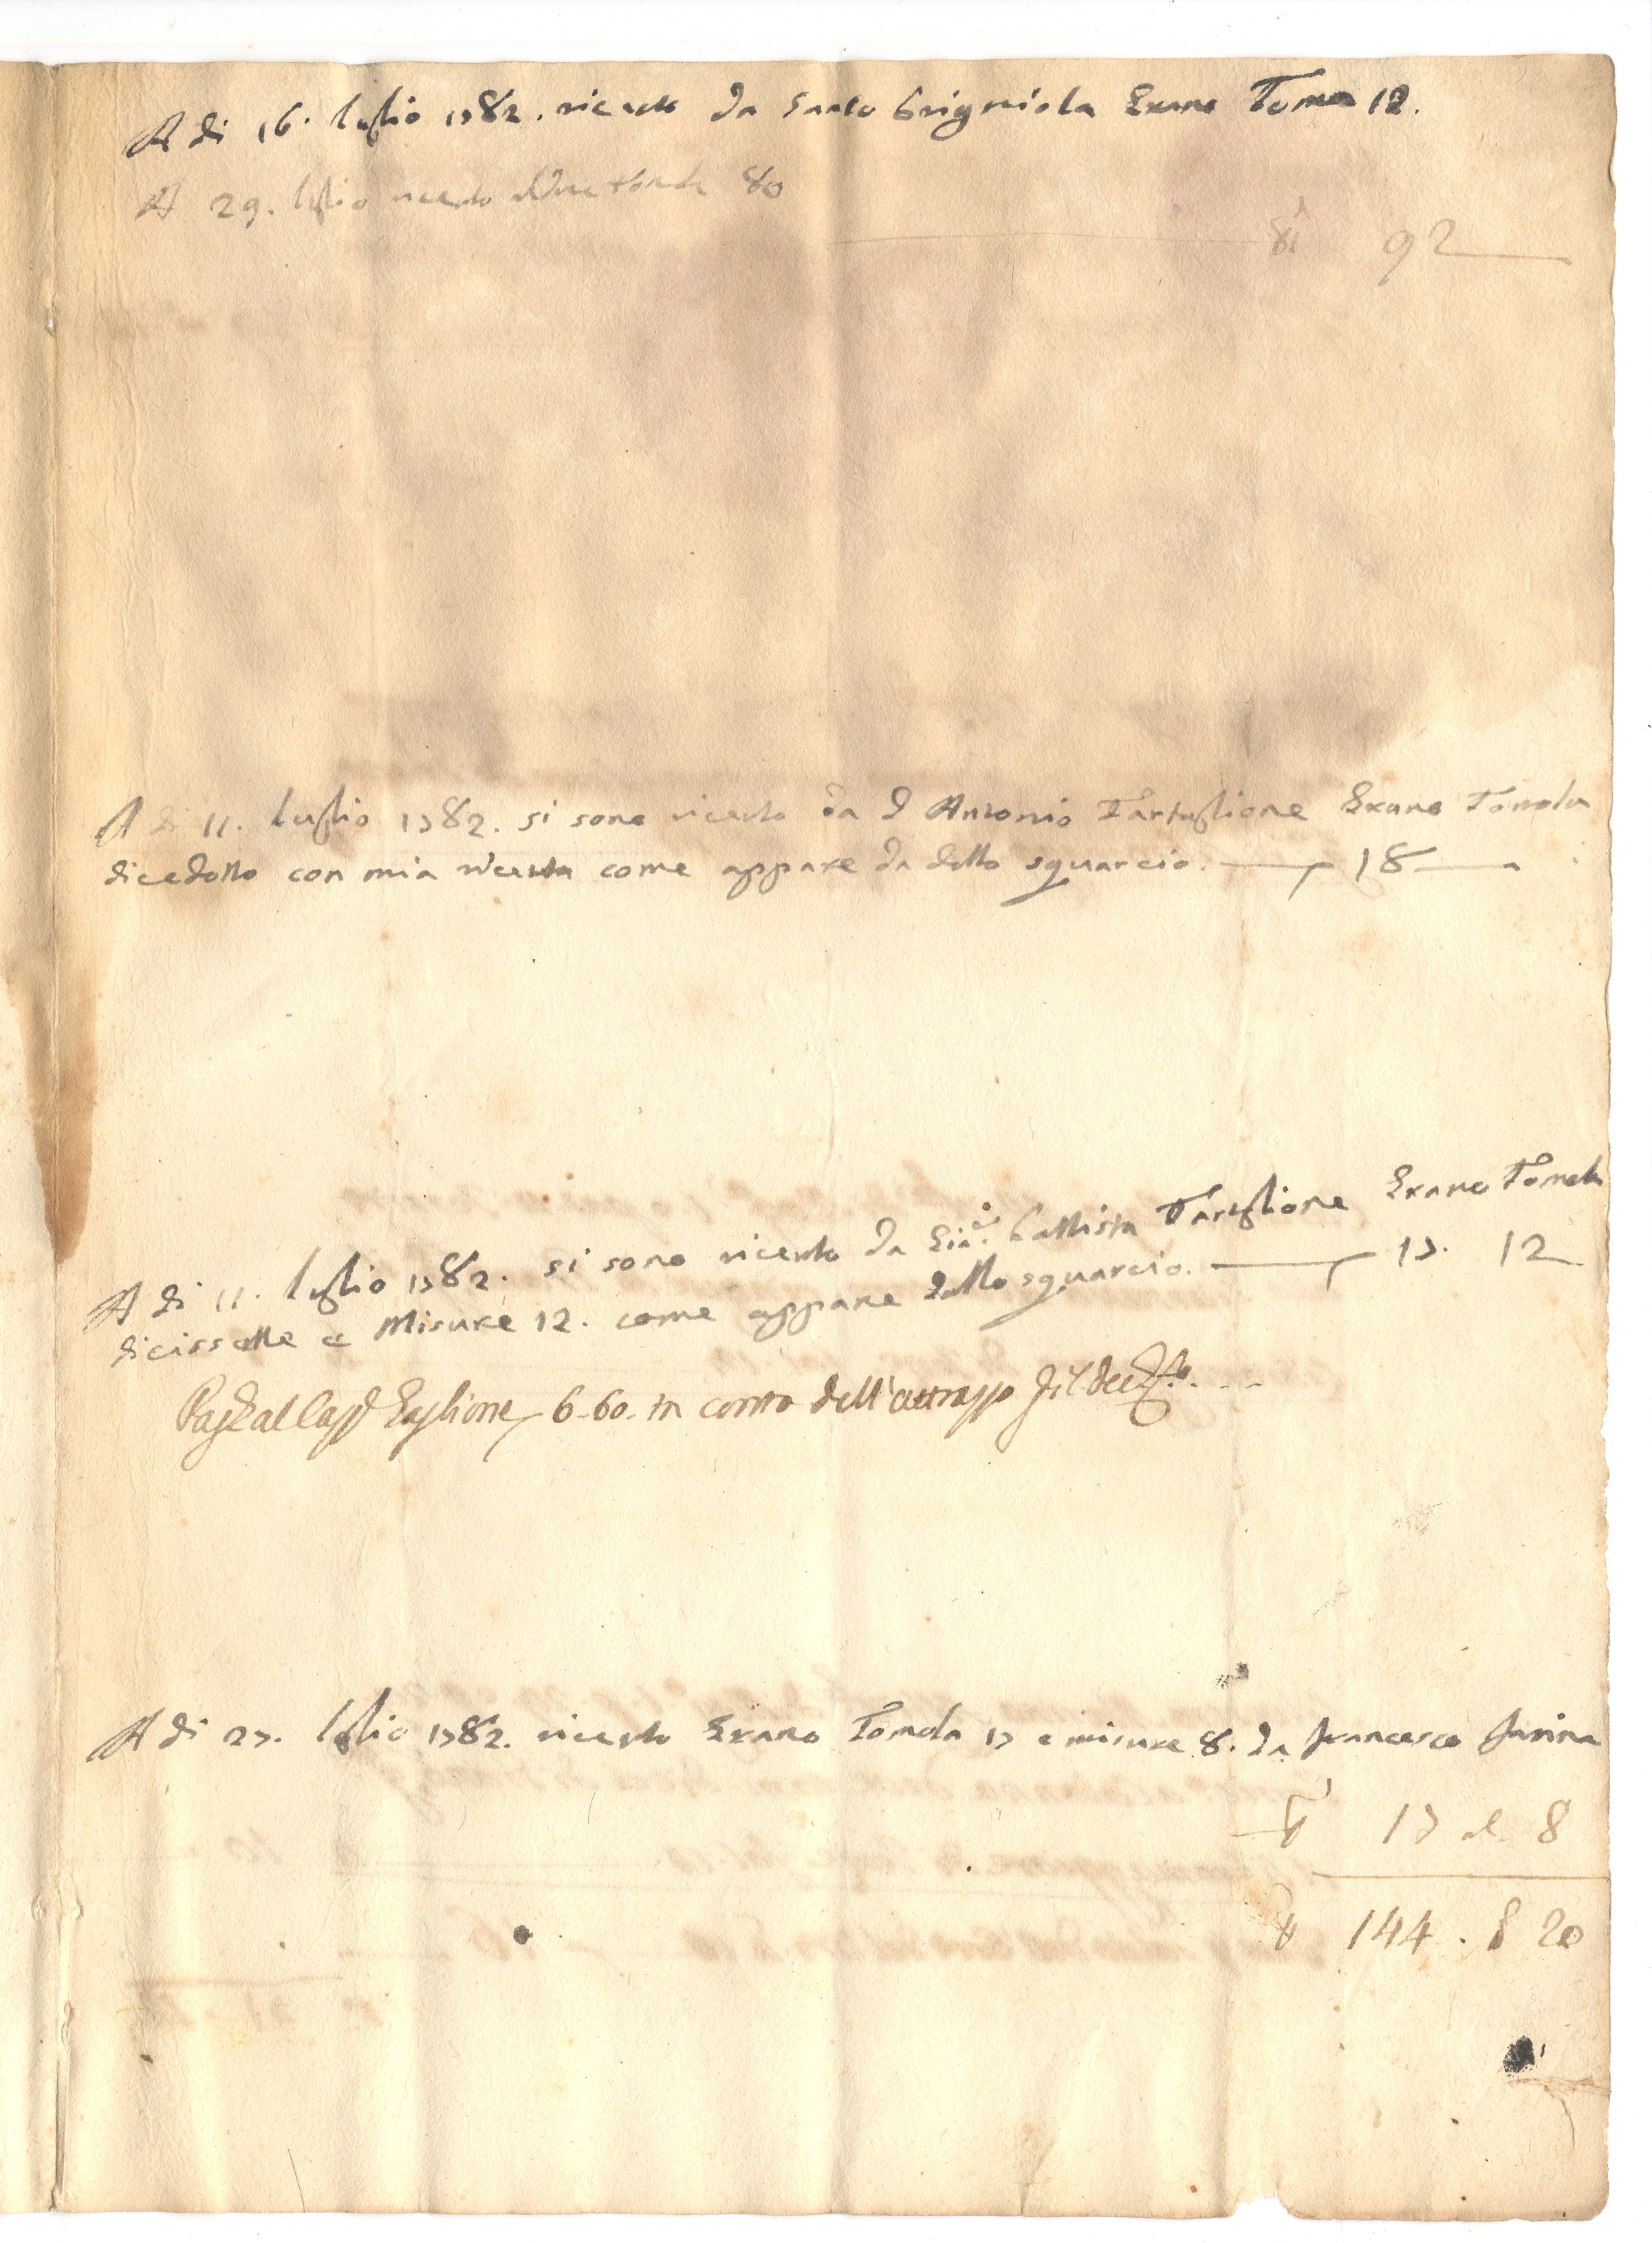 A di 16. luglio 1782. riceuto da Santo Brigniola Grano Toma 12.
A 29. luglio riceuto altre tomola 80
92
A di 11. luglio 1782. si sono riceuto da D Antonio Tartaglione Grano Tomola
dicedotto con mia riceuta come appare da detto squarcio. 18
A di 11. luglio 1782. si sono riceuto da Gia: Battista Tartaglione Grano Tomola
dicissette e Misure 12. come appare dallo squarcio. 17. 12
6-60. in conto dell'
A di 27. luglio 1782. riceuto Grano Tomola 17 e misure 8. da francesco farina
17 8
144. 20